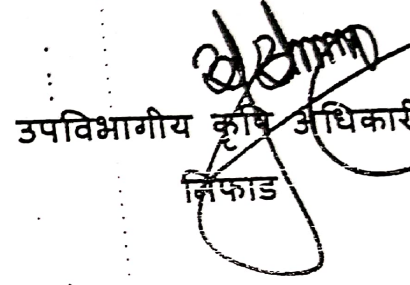 उपविभागीय कृषि अधिकारी
निफाड